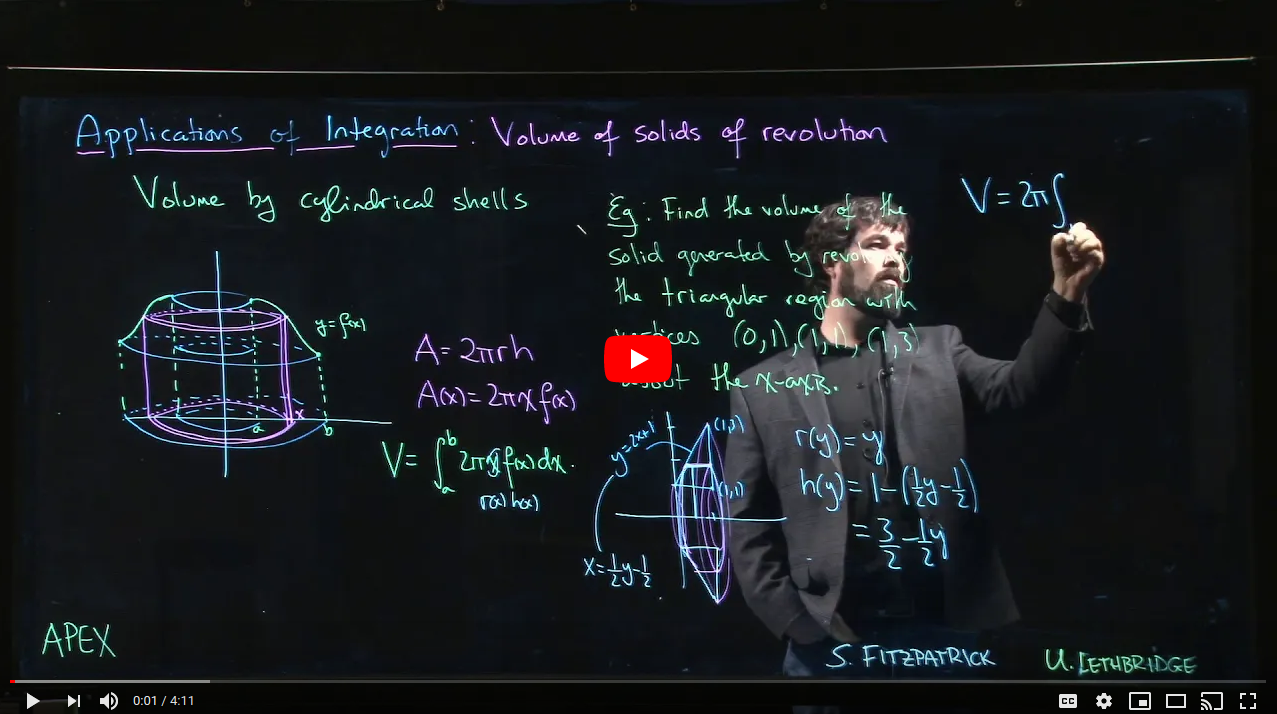 Applications of Integration: Volume of solids of revolution
Volume by cylindrical shells
y=f(x)
x
a
b
A=2πrh
A(x)=2πx f(x)
V=∫_a^b 2πx f(x)dx.
r(x) h(x)
Eg: Find the volume of the
solid generated by revolving
the triangular region with
vertices (0,1),(1,1),(1,3)
about the x-axis.
y=2x+1
(1,3)
(1,1)
x=1/2y-1/2
r(y)=y
h(y)=1-(1/2y-1/2)
=3/2-1/2y
V=2π∫
APEX
S. FITZPATRICK
U. LETHBRIDGE
0:01 / 4:11
CC